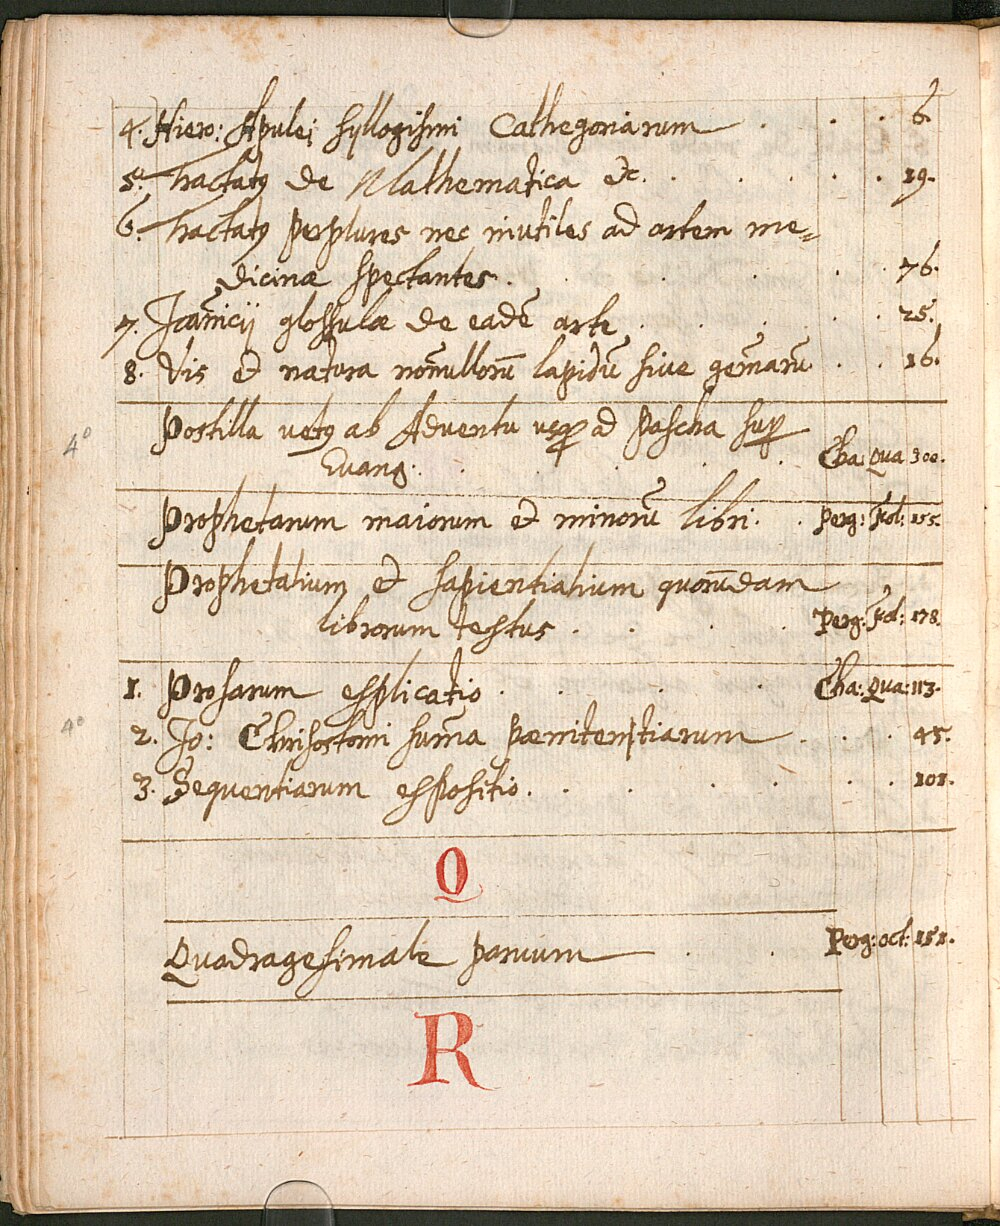 4. Hiero: Apulei syllogismi Cathegoriarum . . . . 6.
5. Tractatꝰ de Mathematica &c. . . . . . 19.
6. Tractatꝰ perplures nec inutiles ad artem me=
dicinæ spectantes . . . . . 76.
7. Joañicij glossulæ de eadē arte . . . . . 25.
8. Vis et natura nōnullorū lapidū siue gem̄arū . . 16.
4º
Postilla vetꝰ ab Aduentu usqꝫ ad Pascha suꝑ
Euang. . . . . . Cha: Qua 300.
Prophetarum maiorum et minorū libri . . Perg: Fol: 155.
Prophetalium et sapientialium quorūdam
librorum textus . . . . Perg: Fol: 178.
1. Prosarum explicatio . . . . . Cha: Qua: 113.
4º
2. Jo: Chrisostomi sum̄a pœnitentiarum . . . 45.
3. Sequentiarum expositio . . . . . . 101.
Q
Quadragesimale paruum . Perg: oct: 151.
R